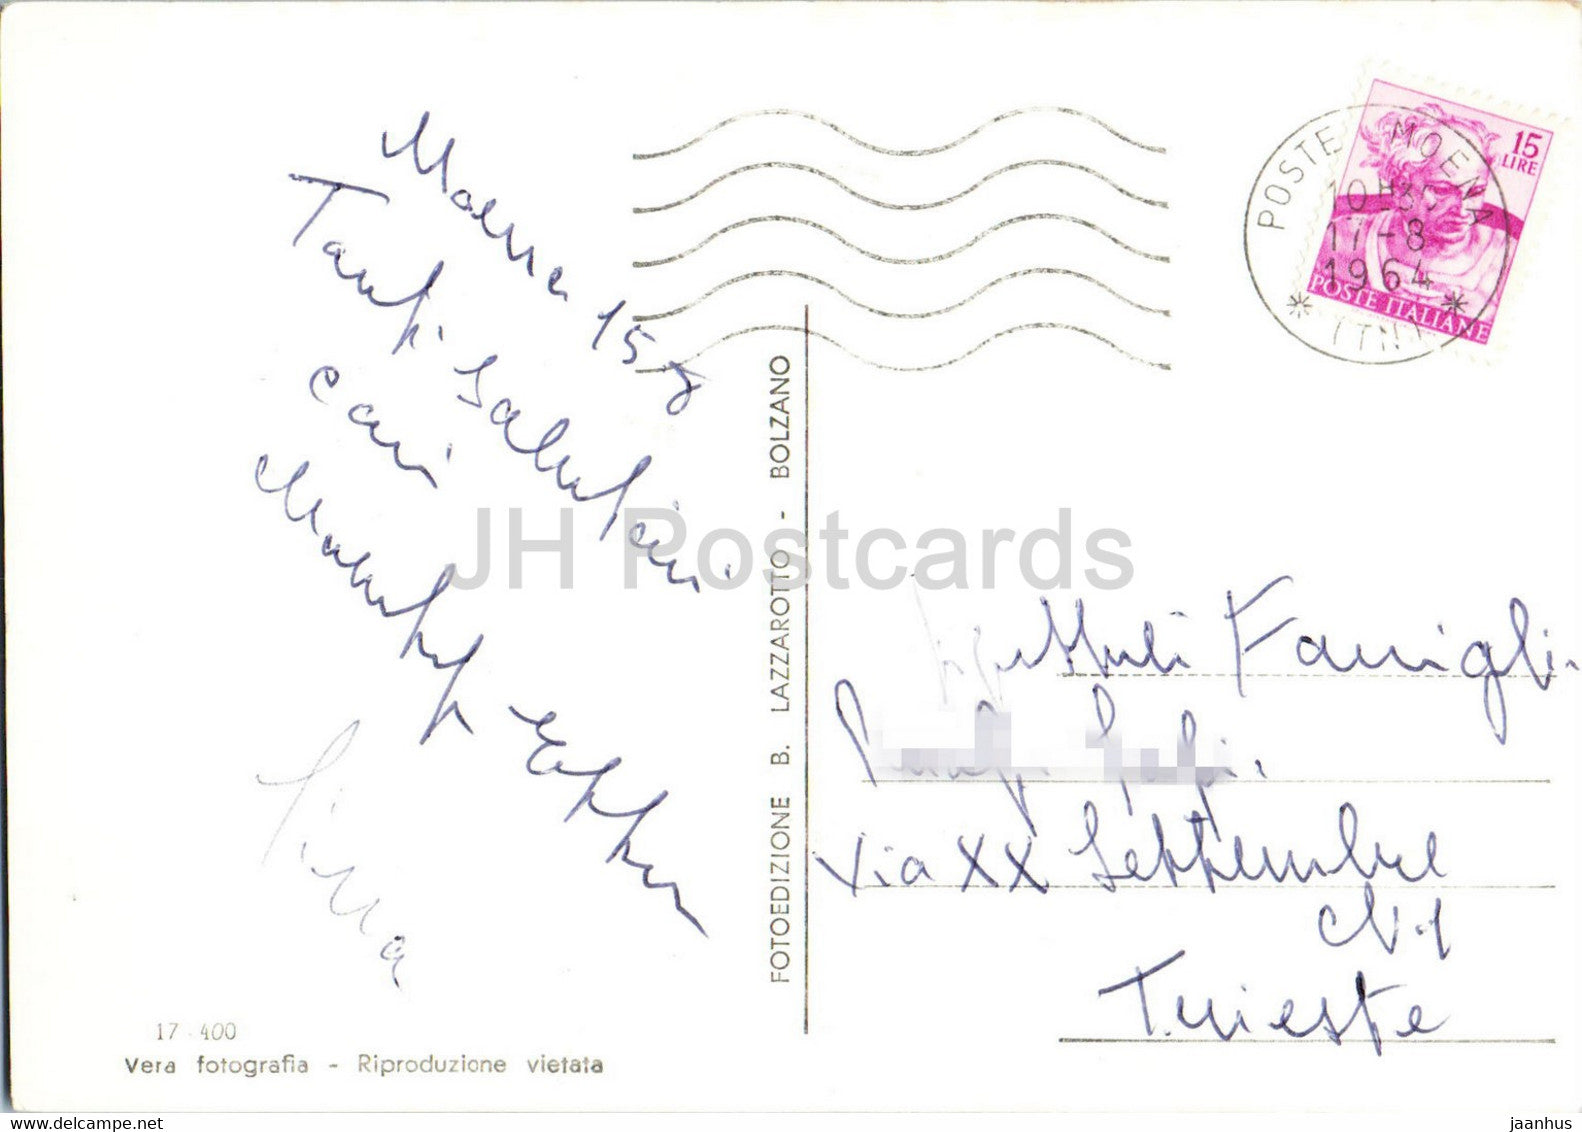 Moena 15 8
Tanti saluti
cari
Sina
17 - 400
Vera fotografia - Riproduzione vietata
FOTOEDIZIONE B. LAZZAROTTO - BOLZANO
POSTE MOENA
10H35
17-8
1964
* (TN) *
15
LIRE
POSTE ITALIANE
JH Postcards
Famigli
Via XX Settembre
N. 1
Trieste
delcampe.net
jaanhus